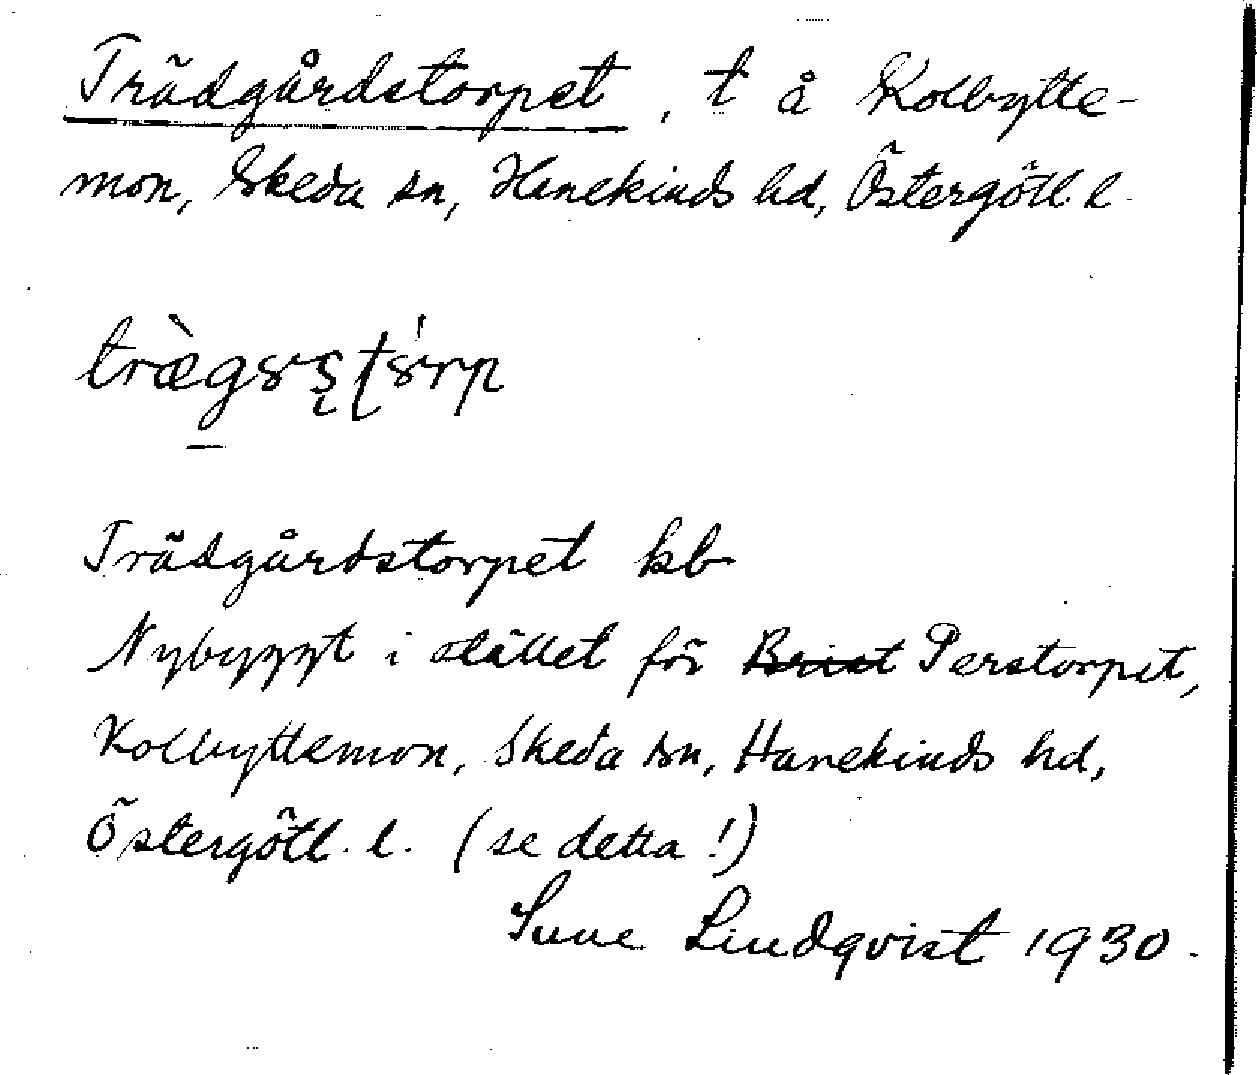 Trädgårdstorpet, t å Kolbytte-
mon, Skeda sn, Hanekinds hd, Östergötl. l.
Trädgårdstorpet kb
Nybyggt i stället för Brist Perstorpet,
Kolbyttemon, Skeda sn, Hanekinds hd,
Östergötl. l. (se detta!)
Sune Lindqvist 1930.